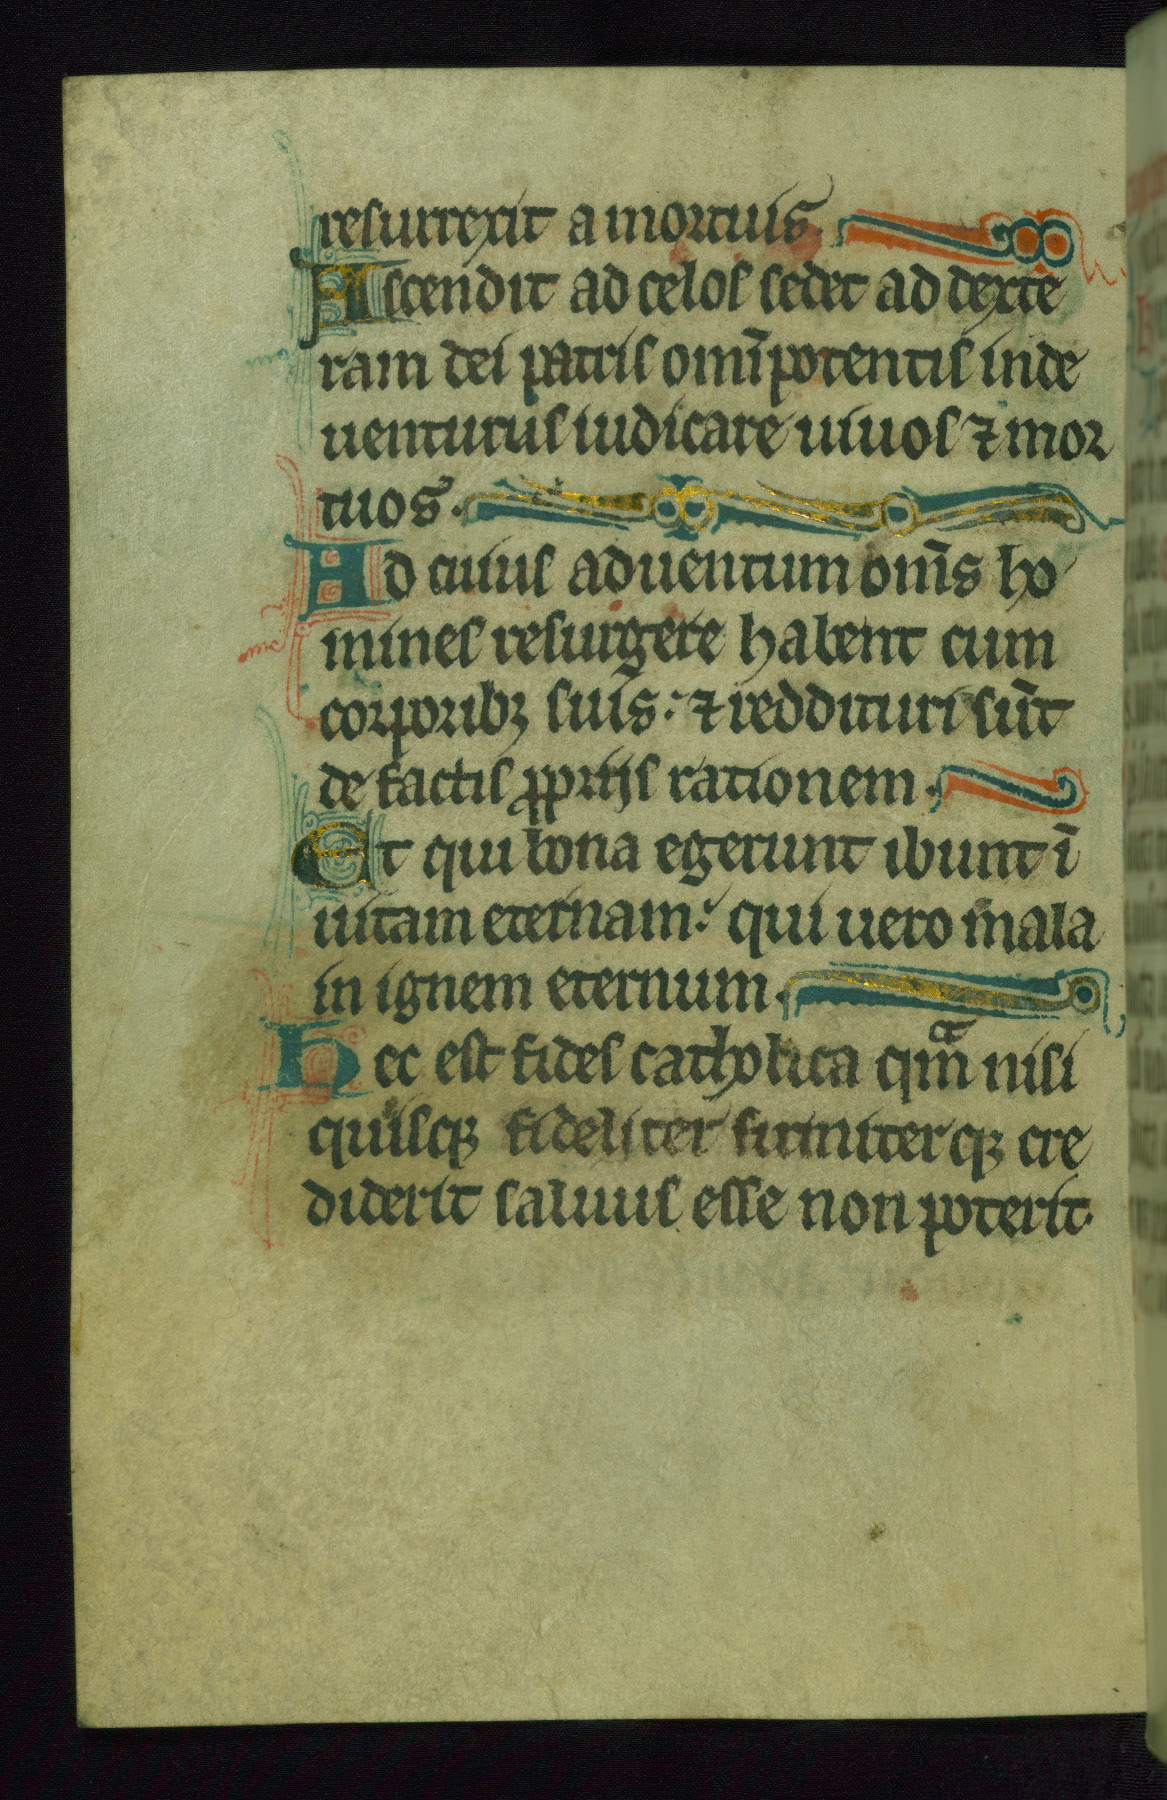 resurrexit a mortuis.
Ascendit ad celos sedet ad dexte
ram dei patris om̄ipotentis inde
uenturus iudicare uiuos ⁊ mor
tuos.
Ad cuius aduentum om̄s ho
mines resurgere habent cum
corporibꝫ suis: ⁊ reddituri sūt
de factis ꝓprijs rationem.
Et qui bona egerunt ibunt ī
uitam eternam: qui uero mala
in ignem eternum.
Hec est fides catholica qm̄ nisi
quisqꝫ fideliter firmiterqꝫ cre
diderit saluus esse non poterit.